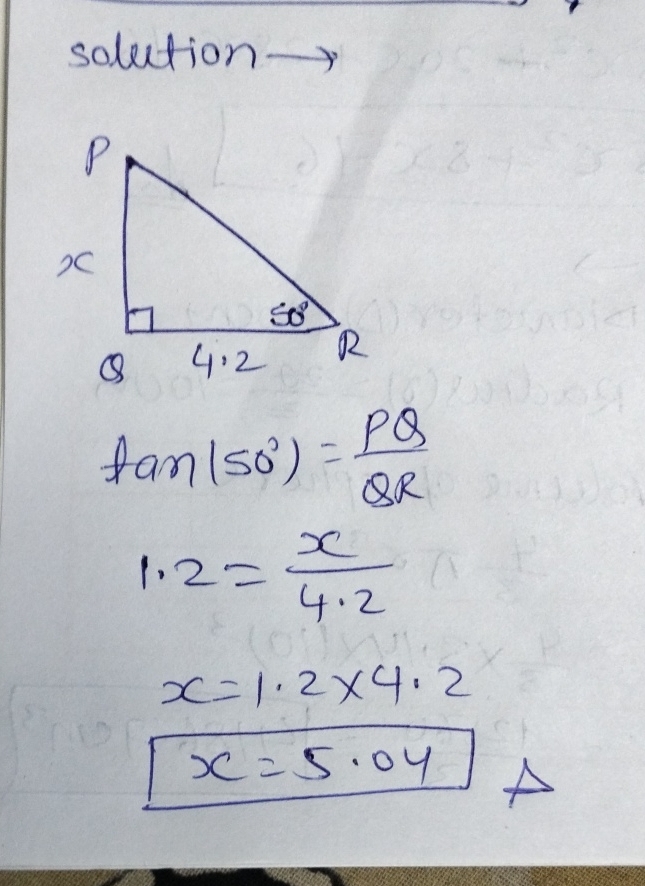 solution →
P
x
50°
Q 4.2 R
tan(50°) = PQ/QR
1.2 = x/4.2
x = 1.2 × 4.2
x = 5.04